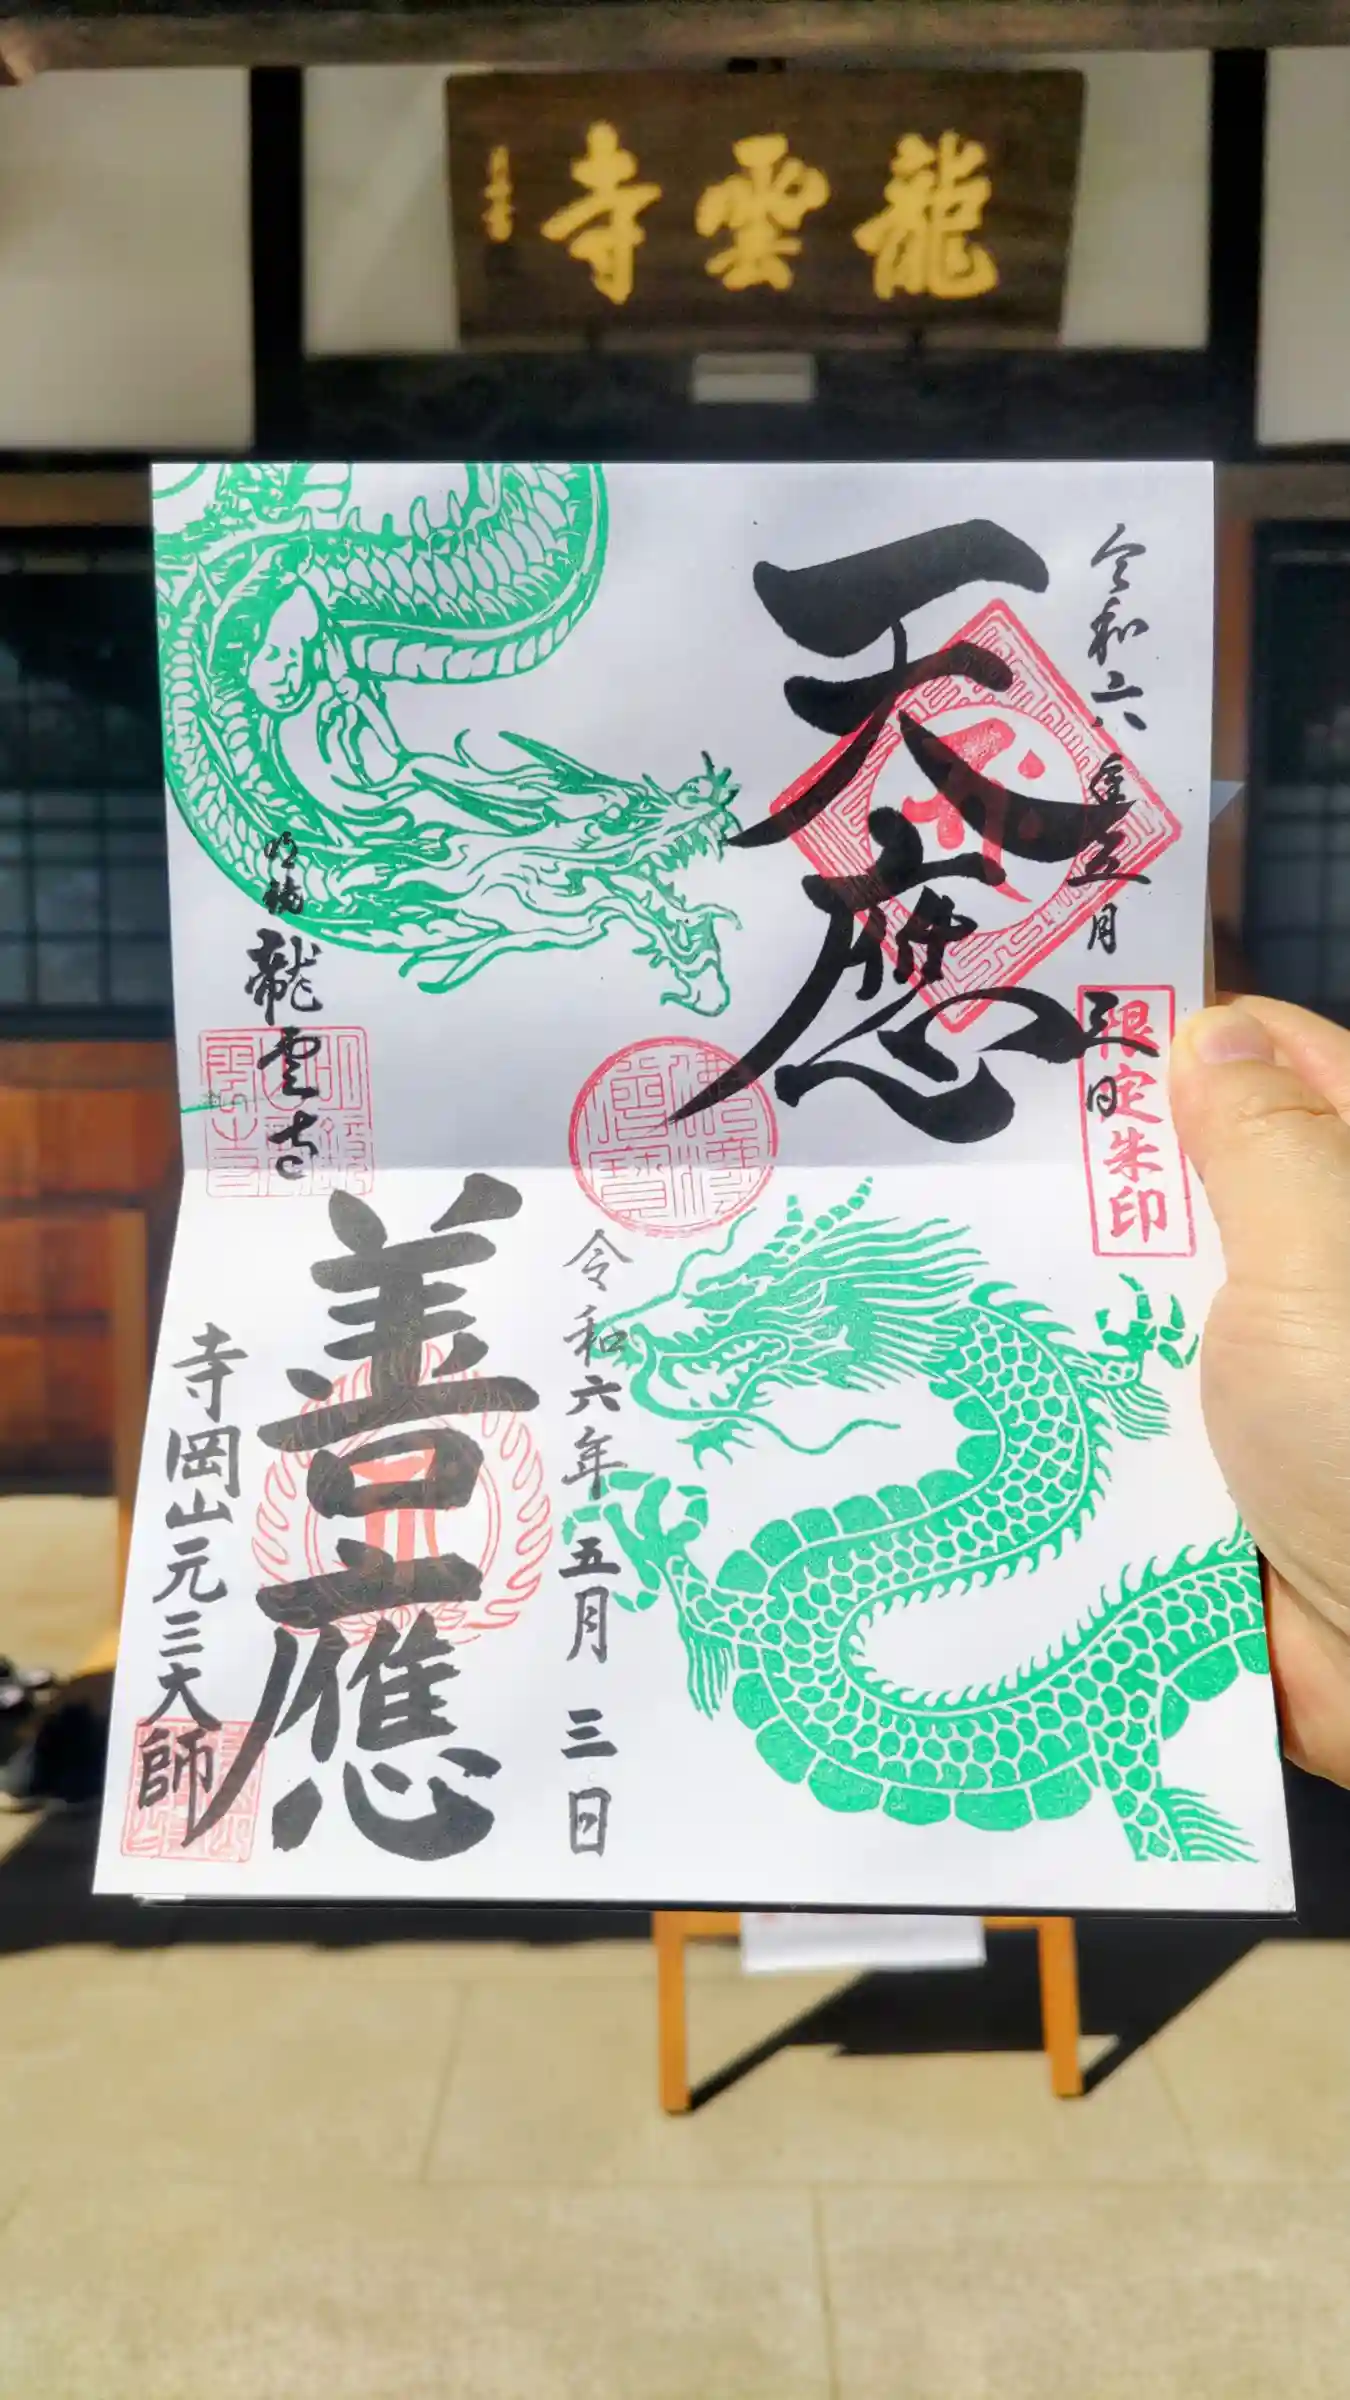 龍雲寺
令和六年五月三日
限定朱印
天應
龍雲寺
令和六年五月三日
善應
寺岡山元三大師